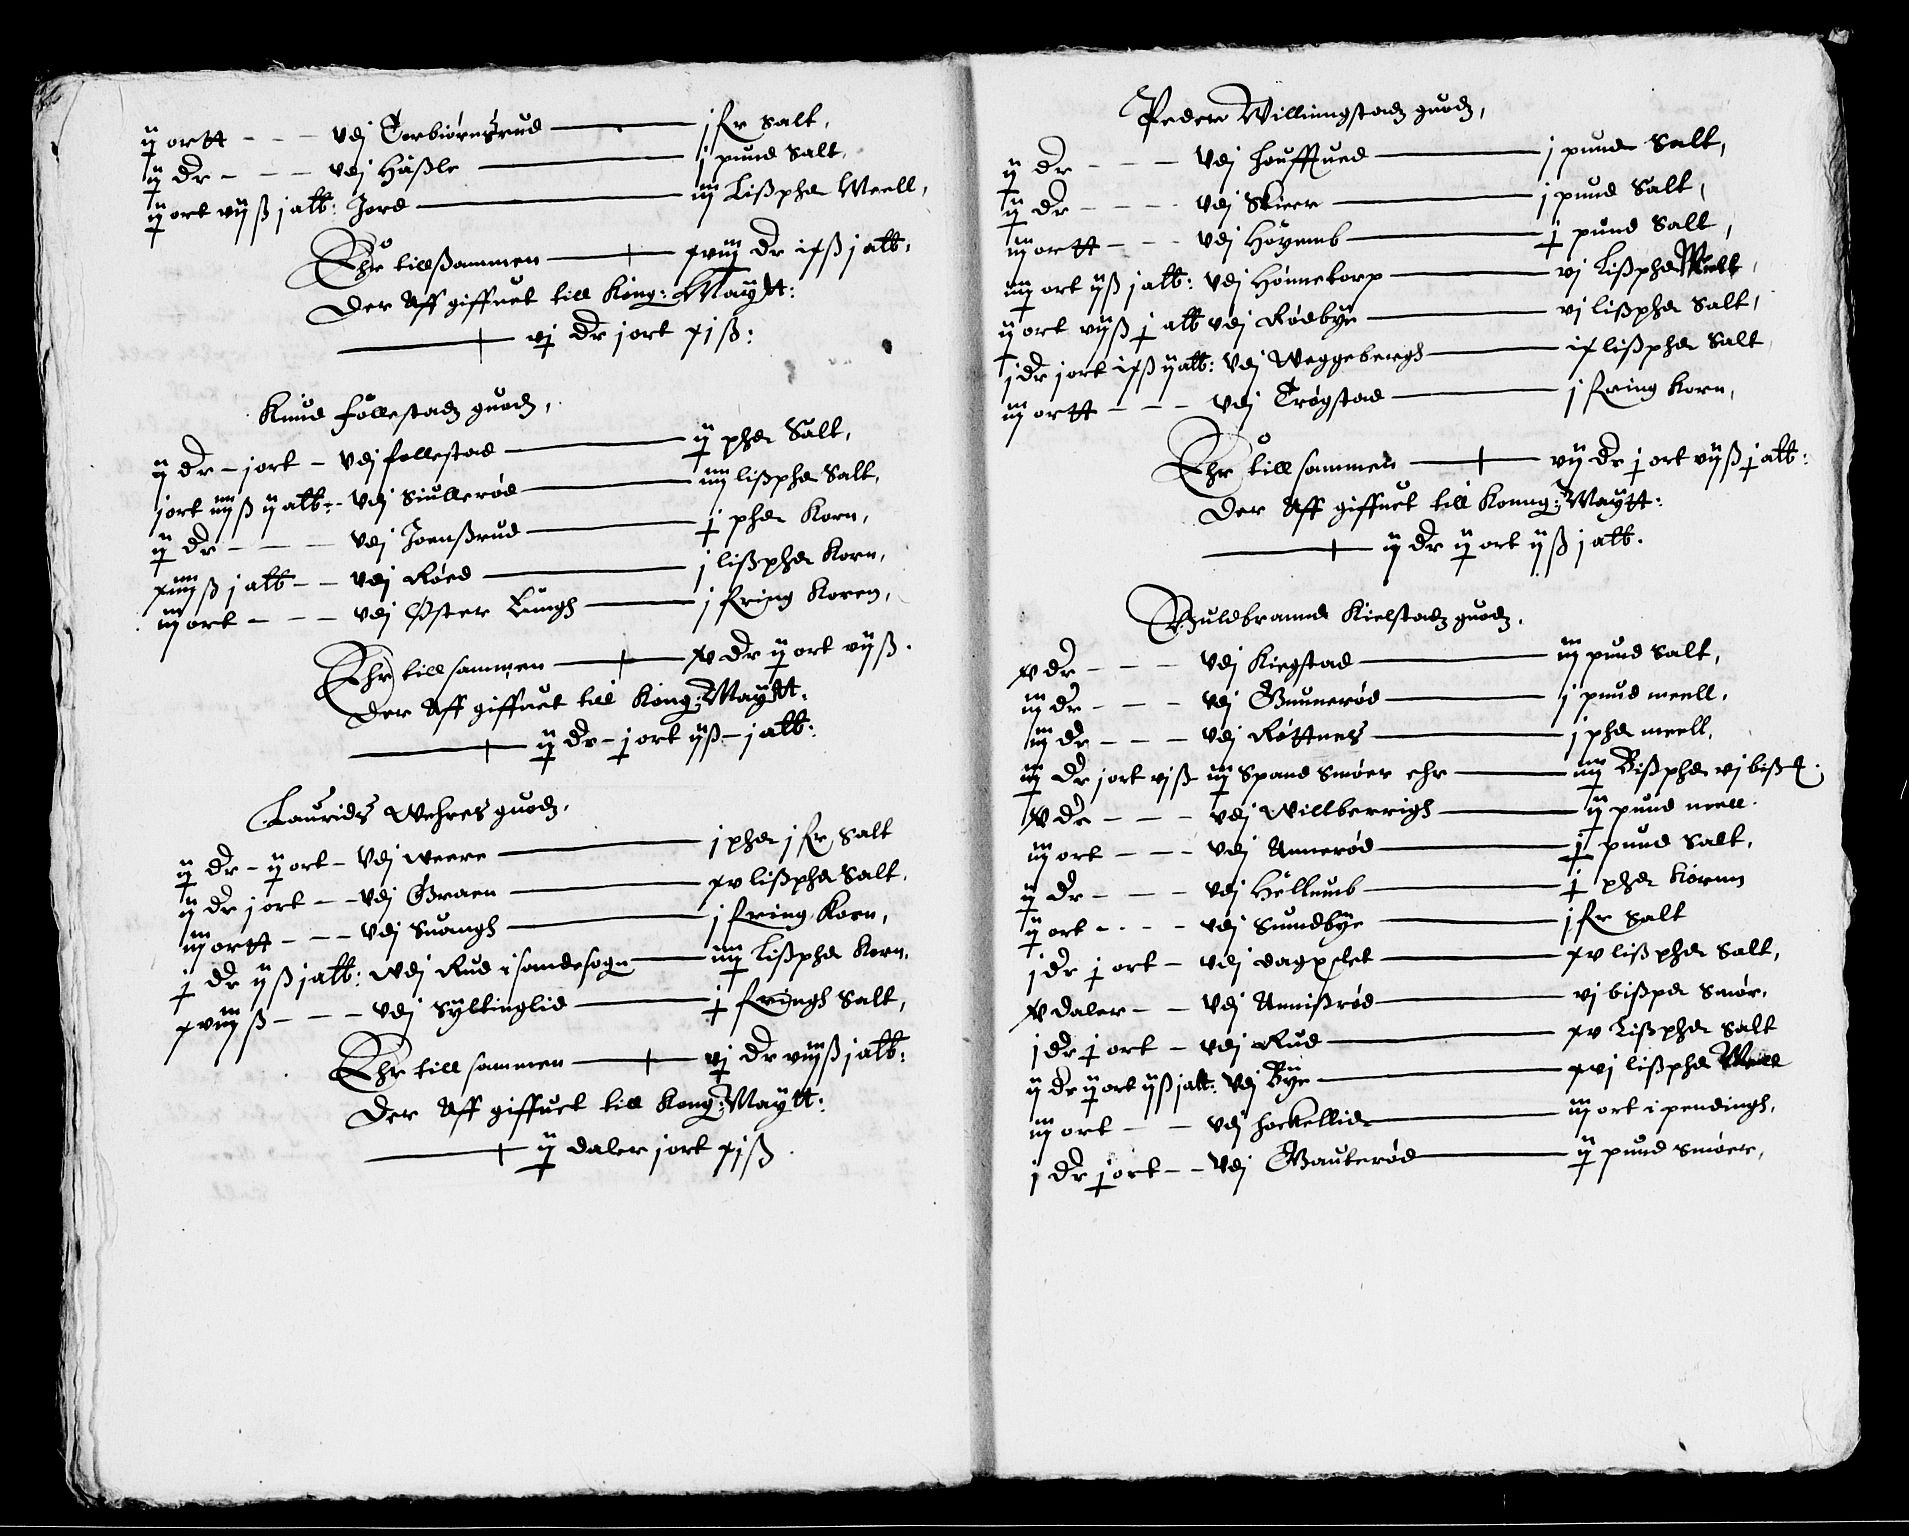 ij ortt - - - vdj Torbiørnßrud - j fr Salt,
ij dr - - - vdj Häßle - j pund Salt,
ij ort vij ß j alb: Jord - iij Lißphd Meell,
Ehr tillsammen - xviij dr ix ß j alb:
Der Aff giffuet till Kong: Maÿtt:
vj dr j ort xj ß:
Knud follestadz guodz,
ij dr - j ort - vdj follestad - ij phd Salt,
j ort iiij ß ij alb: - vdj Siullerød - iiij lißphd Salt,
ij dr - - - vdj Joenßrud - j phd Korn,
xiiij ß j alb - - vdj Røed - j lißphd Korn,
iij ort - - - vdj Øster Lungh - j fring Koren,
Ehr till sammen - xv dr ij ort vij ß.
Der Aff giffuet till Kong: Maÿtt:
ij dr - j ort ij ß - j alb:
Laurids Wehres guodz,
ij dr - ij ort - vdj weere - j phd j fr Salt
ij dr j ort - - vdj Graen - xv lißphd Salt,
iij ortt - - - vdj Suangh - j fring Korn,
j dr ij ß j alb: wdj Rud i sandesogn - iiij Lißphd Korn,
xviij ß - - - vdj Syltinglid - j fringh Salt,
Ehr till sammen - vj dr viij ß j alb:
Der Aff giffuet till Kong: Maytt:
ij daler j ort xj ß.
Peder Willingstadz guodz,
ij dr - - - vdj houffued - j pund Salt,
ij dr - - - vdj Skier - j pund Salt,
iij ortt - - - vdj Höyemb - j pund Salt,
iiij ort ij ß j alb: vdj Hönnetorp - vj Lißphd Mell,
ij ort vij ß j alb vdj Rødbÿe - vj lißphd Salt,
j dr j ort ix ß ij alb: vdj Weggebergh - ix lißphd Salt
iij ortt - - - vdj Trögstad - j fring Korn,
Ehr till sammen - vij dr j ort vij ß j alb:
Der Aff giffuet till Konng: Maytt:
ij dr ij ort ij ß j alb.
Guldbrannd Kielstadz guodz,
xv dr - - - vdj Kirgstad - iij pund Salt,
iij dr - - - vdj Gunnerød - j pund meell,
iij dr - - - vdj Røttnes - j phd meell,
iij dr j ort vj ß iij Spand Smöer ehr - iiij Bißphd vj biß
xv dr - - - vdj Willberrigh - ij pund meell.
iij ort - - - vdj Annerød - j pund Salt,
ij dr - - - vdj Hellumb - j phd Kornn
ij ort - - - vdj Sundbÿe - j fr Salt
j dr j ort - vdj dagxlet - xv lißphd Salt,
xv daler - - vdj Annißrød - vj bißpd Smör,
j dr j ort - vdj Rud - xv Lißphd Salt
ij dr ij ort ij ß j alb: vdj Bÿe - xvj lißphd Mell
iij ort - - vdj hockellid - iij ort i pendingh,
j dr j ort - - vdj Gauterød - ij pund Smöer,